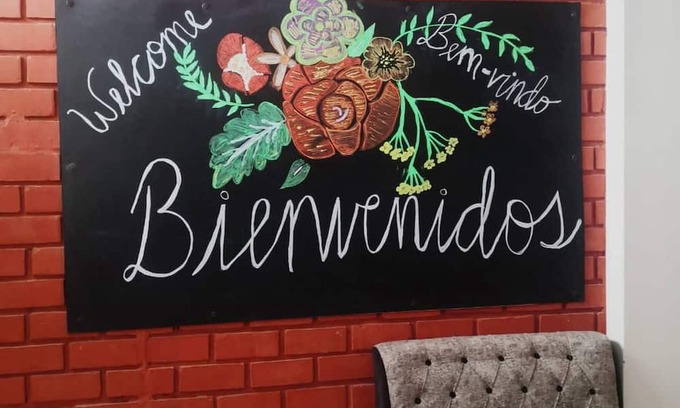 Welcome
Bem-vindo
Bienvenidos